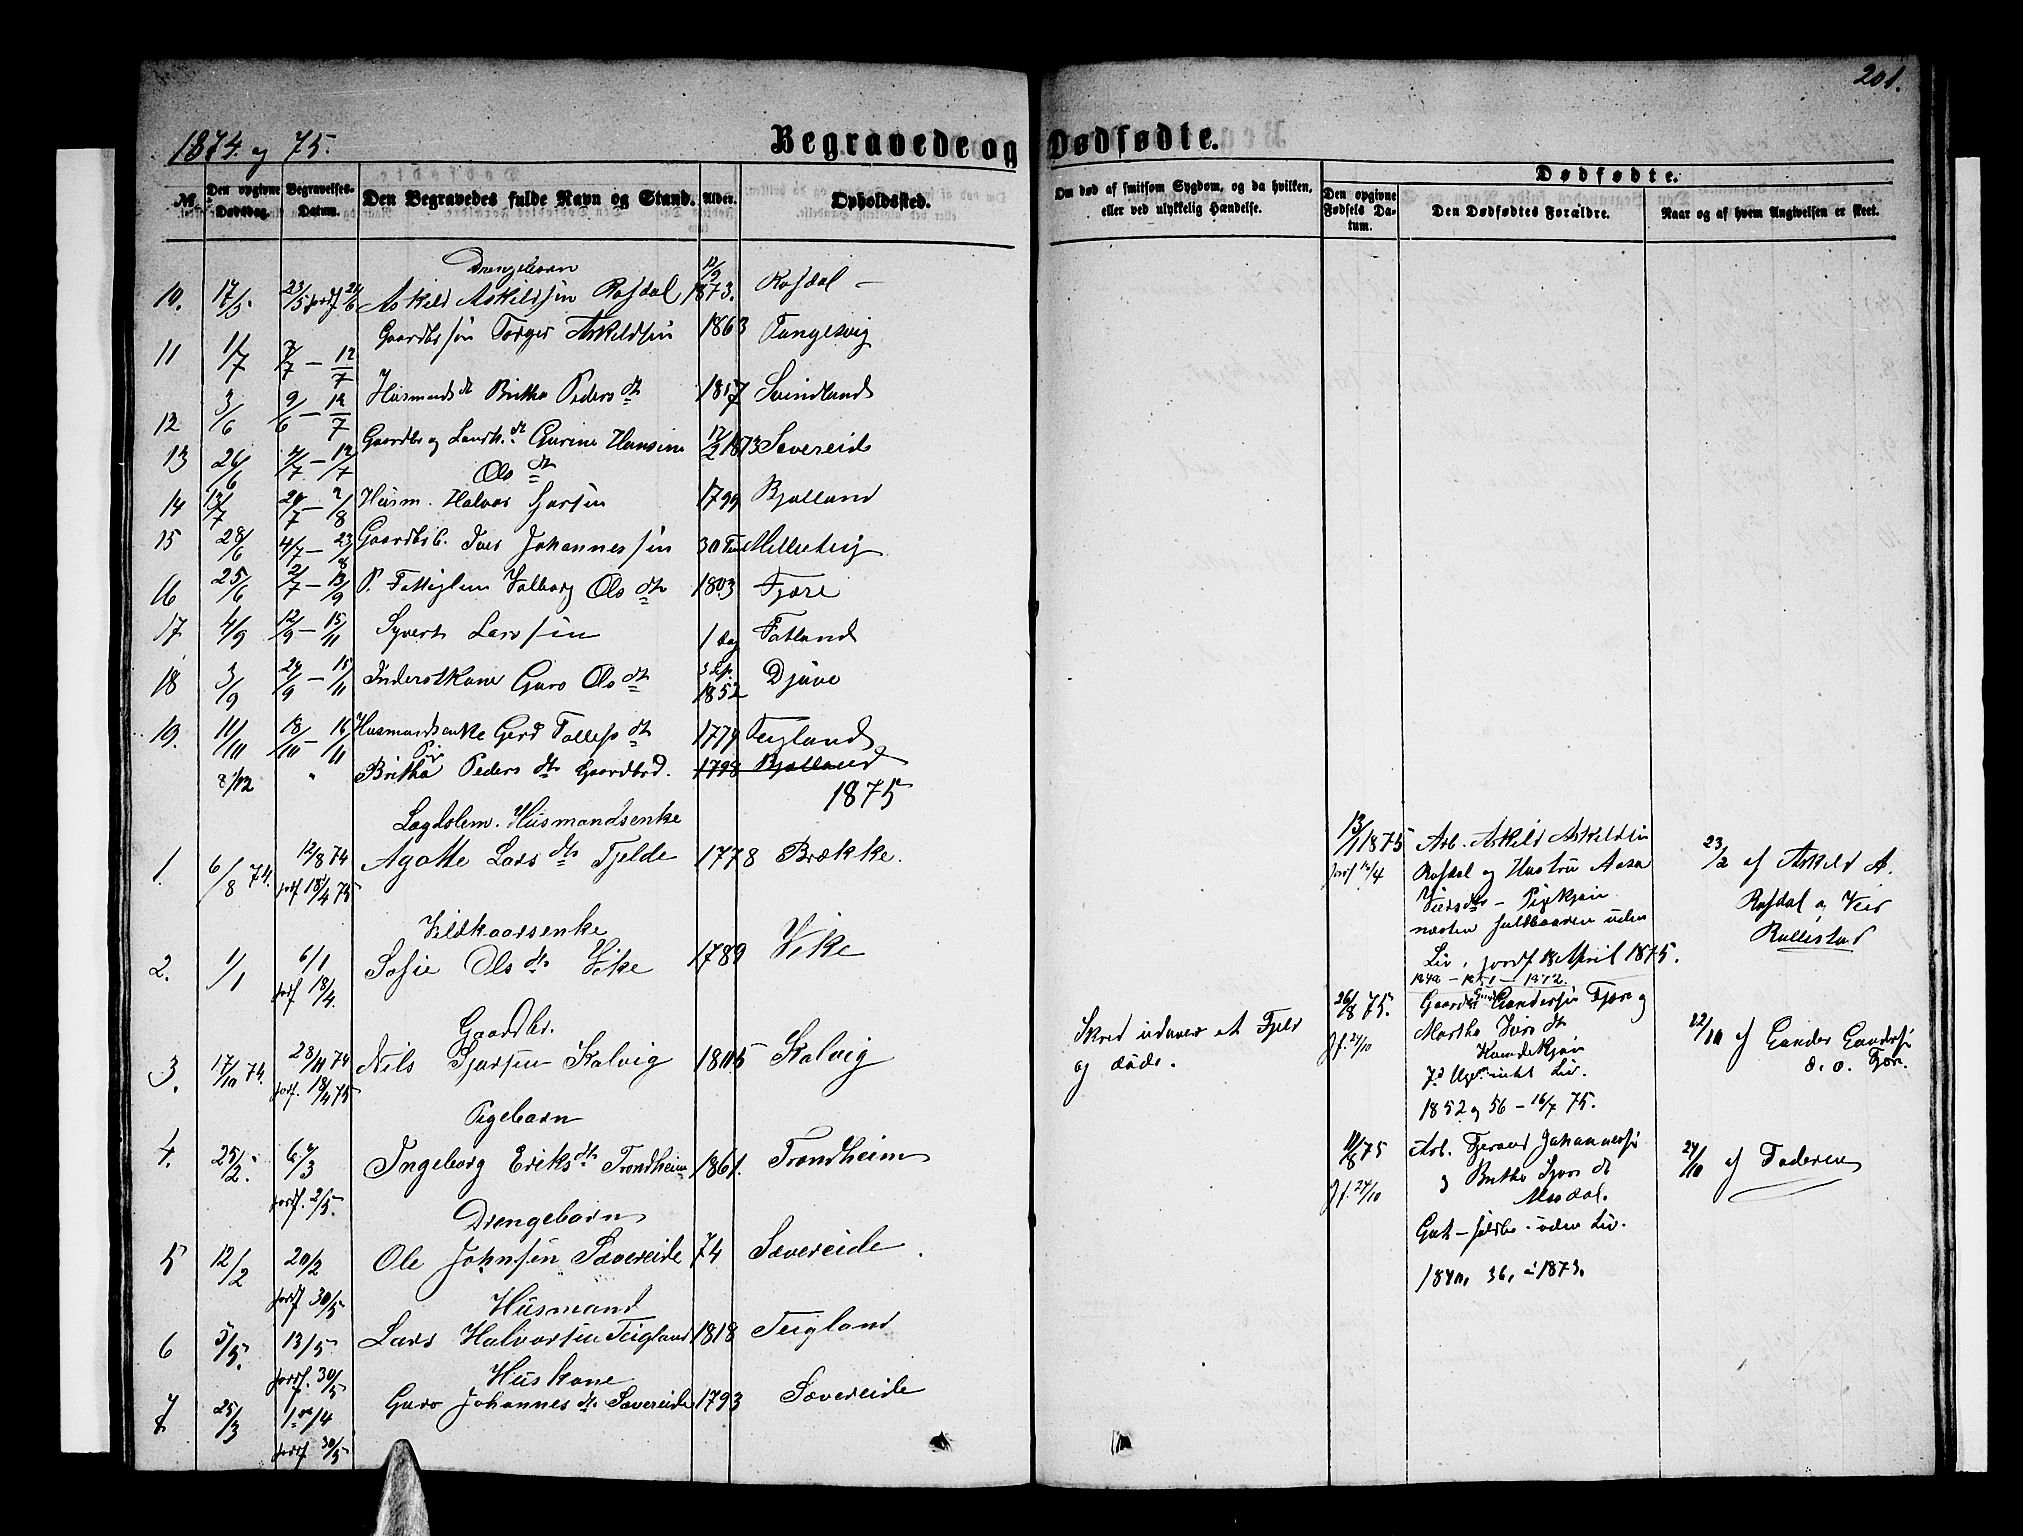 201.
1874. og 75.
Begravede og Dødfødte.
№
Den opgivne Dødsdag.
Begravelses-Datum.
Den Begravedes fulde Navn og Stand.
Alder.
Opholdssted.
Om død af smitsom Sygdom, og da hvilken, eller ved ulykkelig Hændelse.
Dødfødte.
Den opgivne Fødsels Datum.
Den Dødfødtes Forældre.
Naar og af hvem Angivelsen er skeet.
Drengebarn
10. 17/5. 23/5 jordf. Askild Askildsen Rafdal 1873. Rafdal
11 1/7 7/7 – 12/7 Gaardbr søn Torger Askildsen 1863 Tungesvig
12 3/6 9/6 – 12/7 Husmands dt Britha Peders dt 1857 Svindland
13 26/6 4/7 – 12/7 Gaardbr og Landh. dt Gurine Hansine Ols dt 12/2 1873 Sævereide
14 13/7 20/7 – 2/8 Husm. Halvor Sjursen 1799 Bjelland
15 28/6 4/7 – 23/8 Gaardbr. Iver Johannessen Milleteig
16 25/6 2/7 – 13/9 P. Fattiglem Valborg Ols dtr 1803 Fjære
17 4/9 12/9 – 15/11 Syvert Larssen 1 dag Fatland
18 3/9 24/9 – 15/11 Inderstkone Guro Ols dt 1852 Djuve
19. 11/10 18/10 – 16/11 Husmandsenke Gjerd Tollefs dt 1779 Teigland
8/12 " Britha Peders dtr Gaardbrd. 1798 Bjelland
1875
Lægdslem. Husmandsenke
1. 6/8 74. 12/8 74 jordf 18/4 75 Agatte Lars dtr Tjelde 1778 Brække.
Vilkaarsenke
2. 1/1 6/1 jordf 18/4. Sofie Ols dtr Vike 1789 Vike
Gaardbr.
3. 17/10 74. 28/10 74 jordf. 18/4 75 Nils Sjursen Kalvig 1805 Kalvig
Skred udover et Fjeld og døde.
Pigebarn
4. 25/2. 6/3 jordf. 2/5. Ingeborg Eriks dtr Trondheim 1861. Trondheim
Drengebarn
5 12/2 20/2 jordf 30/5 Ole Johnsen Sævereide 74 Sævereide
Husmand
6 5/5. 13/5 jordf. 30/5 Lars Halvorsen Teigland 1818 Teigland
Huskone
7 25/3 1ste/4 jordf 30/5 Guro Johannes dtr Sævereide 1793 Sævereide
13/1 1875 jordf 18/4 Arb. Askild Askildsen Rafdal og Hustru Aasa
Veers dtr – Pigekjøn
næsten fuldbaaren uden
Liv, jordf 18 April 1875.
23/2 af Askild A. Rafdal og Veir Rullestad
26/8 75. J.f. 24/10 Gaardbr Gunder Gundersen Fjære og
Martha Ivers dt
Kvindekjøn
1852 og 56 – 16/7 75.
22/10 af Gunder Gunders. d. o. Fjære.
11/8 75 J.f. 24/10 Arb. Fjeraad Johanness.
og Britha Sjurs dt
Mosdal.
Gut – fuldb. uden Liv.
1840, 36, – 1873.
24/10 af Faderen